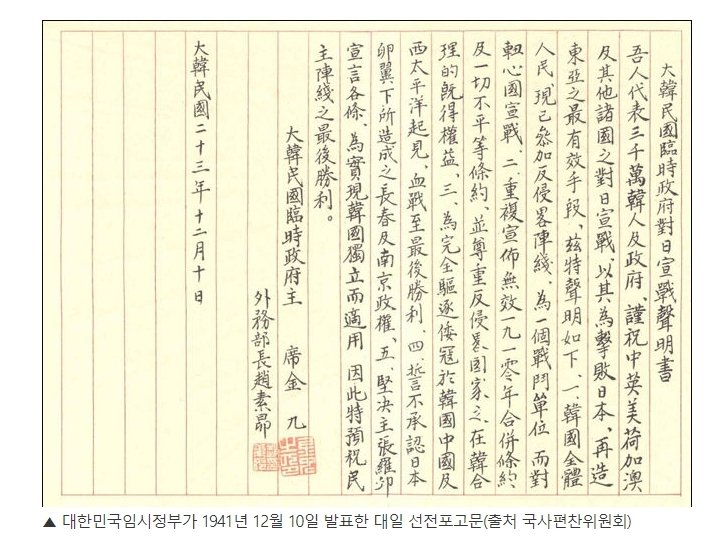 大韓民國臨時政府對日宣戰聲明書
吾人代表三千萬韓人及政府、謹祝中英美荷加澳
及其他諸國之對日宣戰、以其為擊敗日本、再造
東亞之最有效手段、茲特聲明如下、一、韓國全體
人民 現已參加反侵畧陣綫、為一個戰鬥單位 而對
軸心國宣戰、二、重複宣佈無效一九一零年合併條約
及一切不平等條約、並尊重反侵畧國家之、在韓合
理的旣得權益、三、為完全驅逐倭寇於韓國中國及
西太平洋起見、血戰至最後勝利、四、誓不承認日本
卵翼下所造成之長春及南京政權、五、堅決主張羅卯
宣言各條、為實現韓國獨立而適用 因此特預祝民
主陣綫之最後勝利。
大韓民國臨時政府主 席 金 九
外務部長趙素昻
大韓民國二十三年十二月十日
▲ 대한민국임시정부가 1941년 12월 10일 발표한 대일 선전포고문(출처 국사편찬위원회)